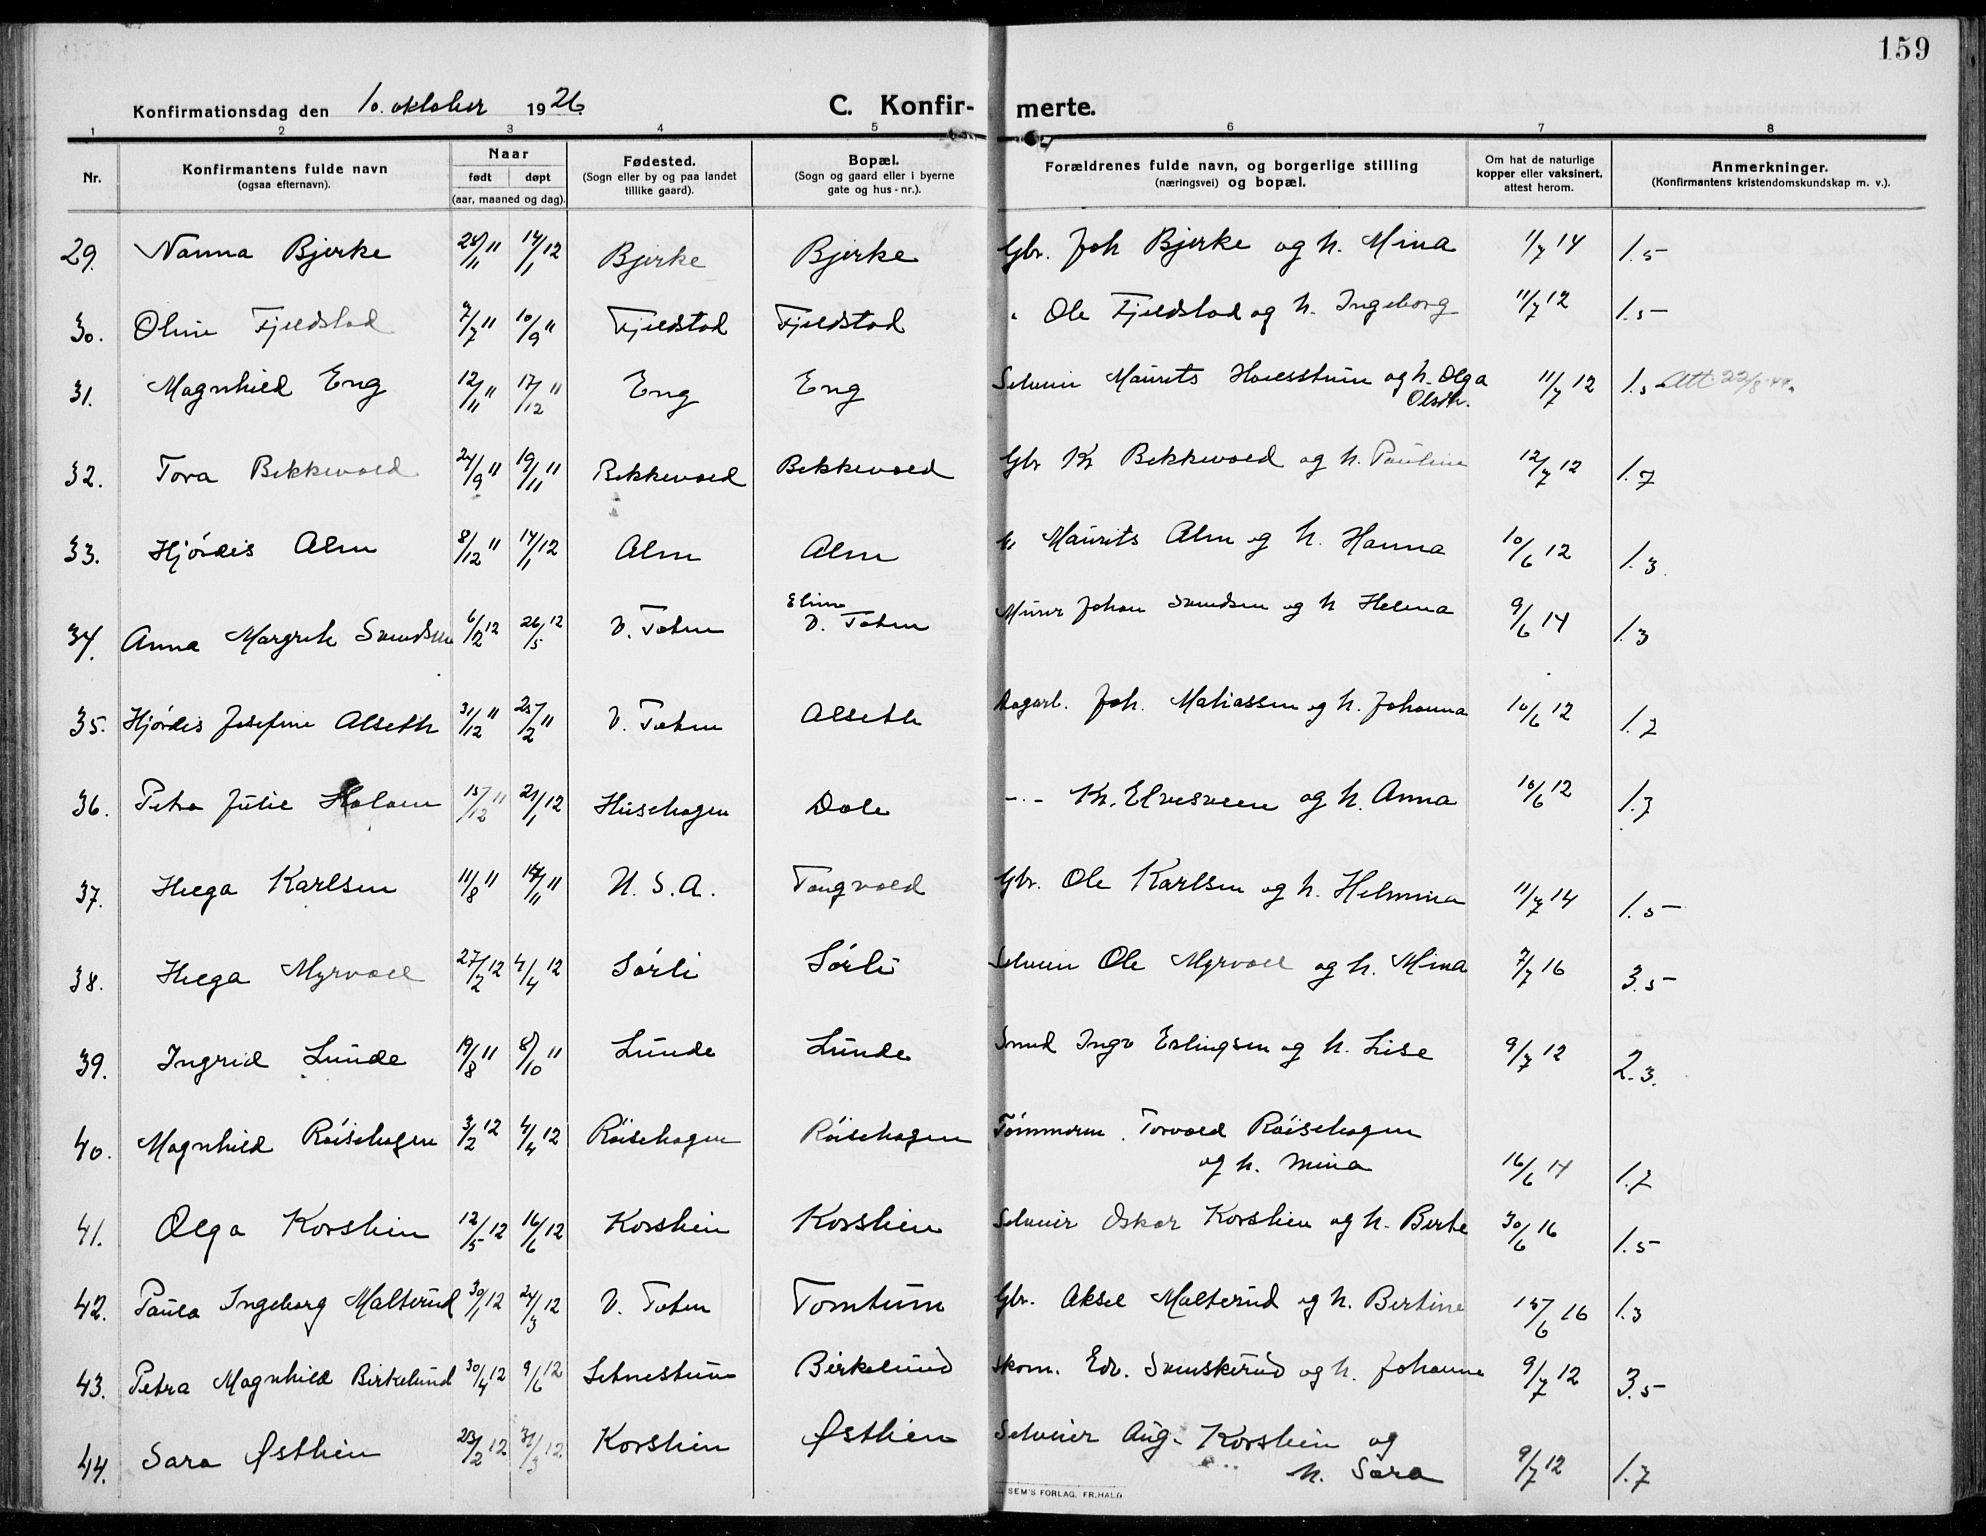 159
Konfirmationsdag den 10. oktober 1926.
C. Konfir- merte.
1 2 3 4 5 6 7 8
Nr. | Konfirmantens fulde navn (ogsaa efternavn). | Naar født døpt (aar, maaned og dag). | Fødested. (Sogn eller by og paa landet tillike gaard). | Bopæl. (Sogn og gaard eller i byerne gate og hus-nr.). | Forældrenes fulde navn, og borgerlige stilling (næringsvei) og bopæl. | Om hat de naturlige kopper eller vaksinert, attest herom. | Anmerkninger. (Konfirmantens kristendomskundskap m. v.).
29. Nanna Bjerke 28/11 11 14/1 12 Bjerke Bjerke Gbr. Joh Bjerke og h. Mina 11/7 14 1.5
30. Oline Fjeldstad 7/7 11 10/9 11 Fjeldstad Fjeldstad " Ole Fjeldstad og h. Ingeborg 11/7 12 1.5
31. Magnhild Eng 12/11 11 17/12 11 Eng Eng Selveier Maurits og h. Olga Olsdtr. 11/7 12 1.5 Att 22/8-44.
32. Tora Bekkevold 24/9 11 19/11 11 Bekkevold Bekkevold Gbr Kr Bekkevold og h. Pauline 12/7 12 1.7
33. Hjørdis Alm 8/12 11 14/1 12 Alm Alm " Maurits Alm og h. Hanna 10/6 12 1.3.
34. Anna Margrete Svendsen 6/2 12 26/5 12 V. Toten Elim V. Toten Murer Johan Svendsen og h Helena 9/6 14 1.3
35. Hjørdis Josefine Alseth 31/12 11 25/2 11 V. Toten Alseth Dagarb. Joh. Matiassen og h. Johanna 10/6 12 1.7
36. Petra Julie Holom 15/12 11 21/1 12 Husehagen Dale -"- Kr. Elvesveen og h. Anna 10/6 12 1.7
37. Helga Karlsen 11/8 11 /11 11 U. S. A. Tangvold Gbr. Ole Karlsen og h. Helmina 11/7 14 1.5
38. Helga Myrvold 27/2 12 4/4 12 Sørli Sørli Selveier Ole Myrvold og h. Mina 7/7 16 3.5
39. Ingrid Lunde 19/8 11 8/10 11 Lunde Lunde Smed Ingv Erlingsen og h. Lise 9/7 12 2.3.
40. Magnhild Røisehagen 3/2 12 4/4 12 Røisehagen Røisehagen Tømmerm. Torvald Røisehagen
og h. Mina 16/6 14 1.7
41. Olga Korslien 12/5 12 16/6 12 Korslien Korslien Selveier Oskar Korslien og h. Berte 30/6 16 1.5
42. Paula Ingeborg Malterud 30/1 12 24/3 12 V. Toten Tomtum Gbr. Aksel Malterud og h. Bertine 15/6 16 1.3
43. Petra Magnhild Birkelund 30/4 12 9/6 12 Setnestuen Birkelund Skom. Edv. Svenskerud og h. Johanne 9/7 12 3.5
44. Sara Østlien 23/2 12 31/3 12 Korslien Østlien Selveier Aug. Korslien og
h. Sara 9/7 12 1.7
SEM'S FORLAG, FR.HALD